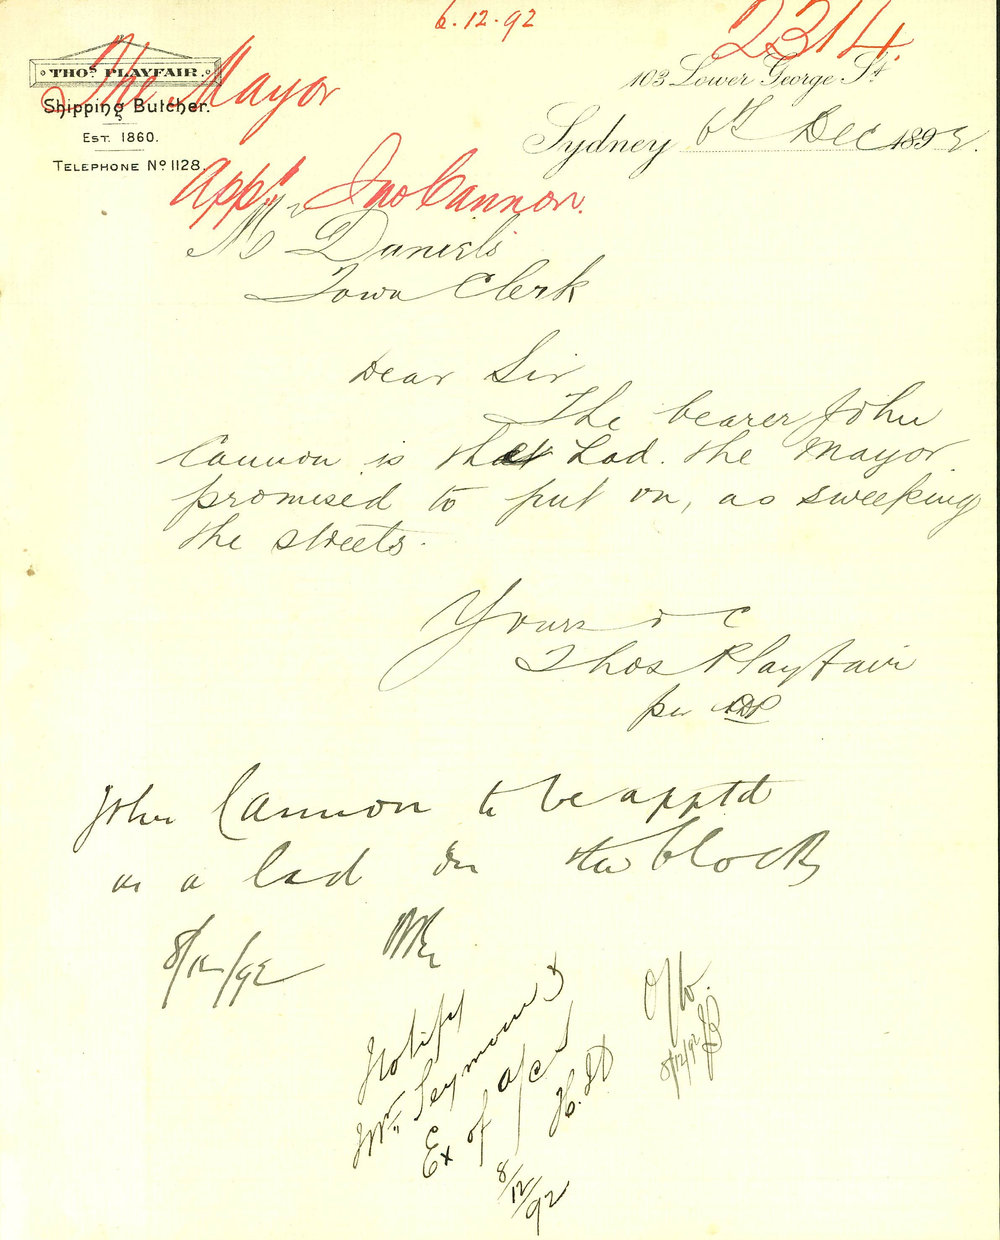 6.12.92
2314.
THOS PLAYFAIR.
Shipping Butcher.
EST. 1860.
TELEPHONE No 1128.
The Mayor
103 Lower George St.
Sydney 6th Dec 1892.
Appt. Jno Cannon.
Mr Daniels
Town Clerk
Dear Sir
The bearer John
Cannon is that Lad. the Mayor
promised to put on, as sweeking
the streets.
Yours &c
Thos Playfair
per
John Cannon to be apptd
as a lad on the blocks
8/12/92
Notify
Mr. Seymour &
Ex of a/cs
H.D
8/12/92
8/12/92